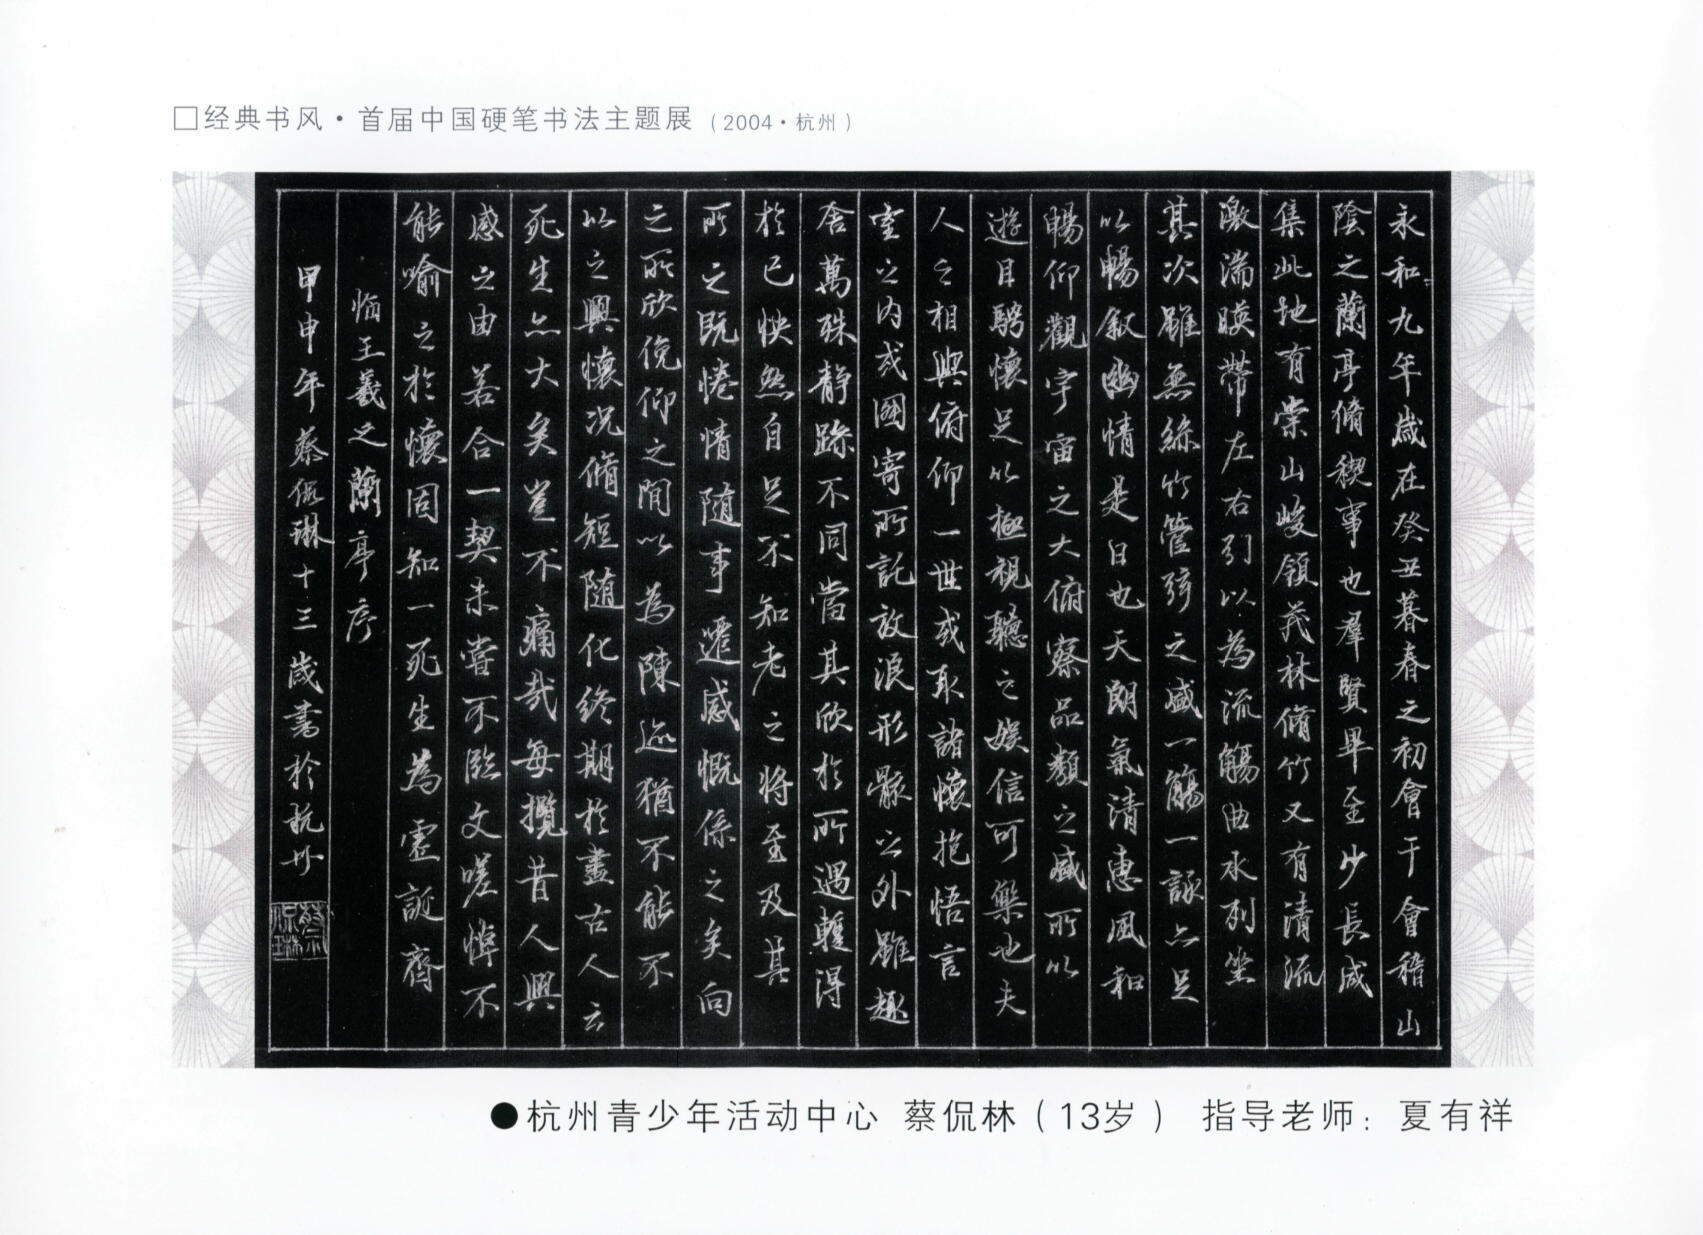 □经典书风·首届中国硬笔书法主题展（2004·杭州）
永和九年歲在癸丑暮春之初會于會稽山
陰之蘭亭脩稧事也羣賢畢至少長咸
集此地有崇山峻領茂林脩竹又有清流
激湍暎帶左右引以為流觴曲水列坐
其次雖無絲竹管弦之盛一觴一詠亦足
以暢叙幽情是日也天朗氣清惠風和
暢仰觀宇宙之大俯察品類之盛所以
遊目騁懷足以極視聽之娛信可樂也夫
人之相與俯仰一世或取諸懷抱悟言
室之內或因寄所託放浪形骸之外雖趣
舍萬殊静躁不同當其欣於所遇蹔得
於己怏然自足不知老之將至及其
所之既惓情随事遷感慨係之矣向
之所欣俛仰之間以為陳迹猶不能不
以之興懷況脩短随化終期於盡古人云
死生亦大矣豈不痛哉每攬昔人興
感之由若合一契未嘗不臨文嗟悼不
能喻之於懷固知一死生為虛誕齊
临王羲之蘭亭序
甲申年蔡侃琳十三歲書於杭州
蔡侃琳
●杭州青少年活动中心 蔡侃林（13岁） 指导老师：夏有祥